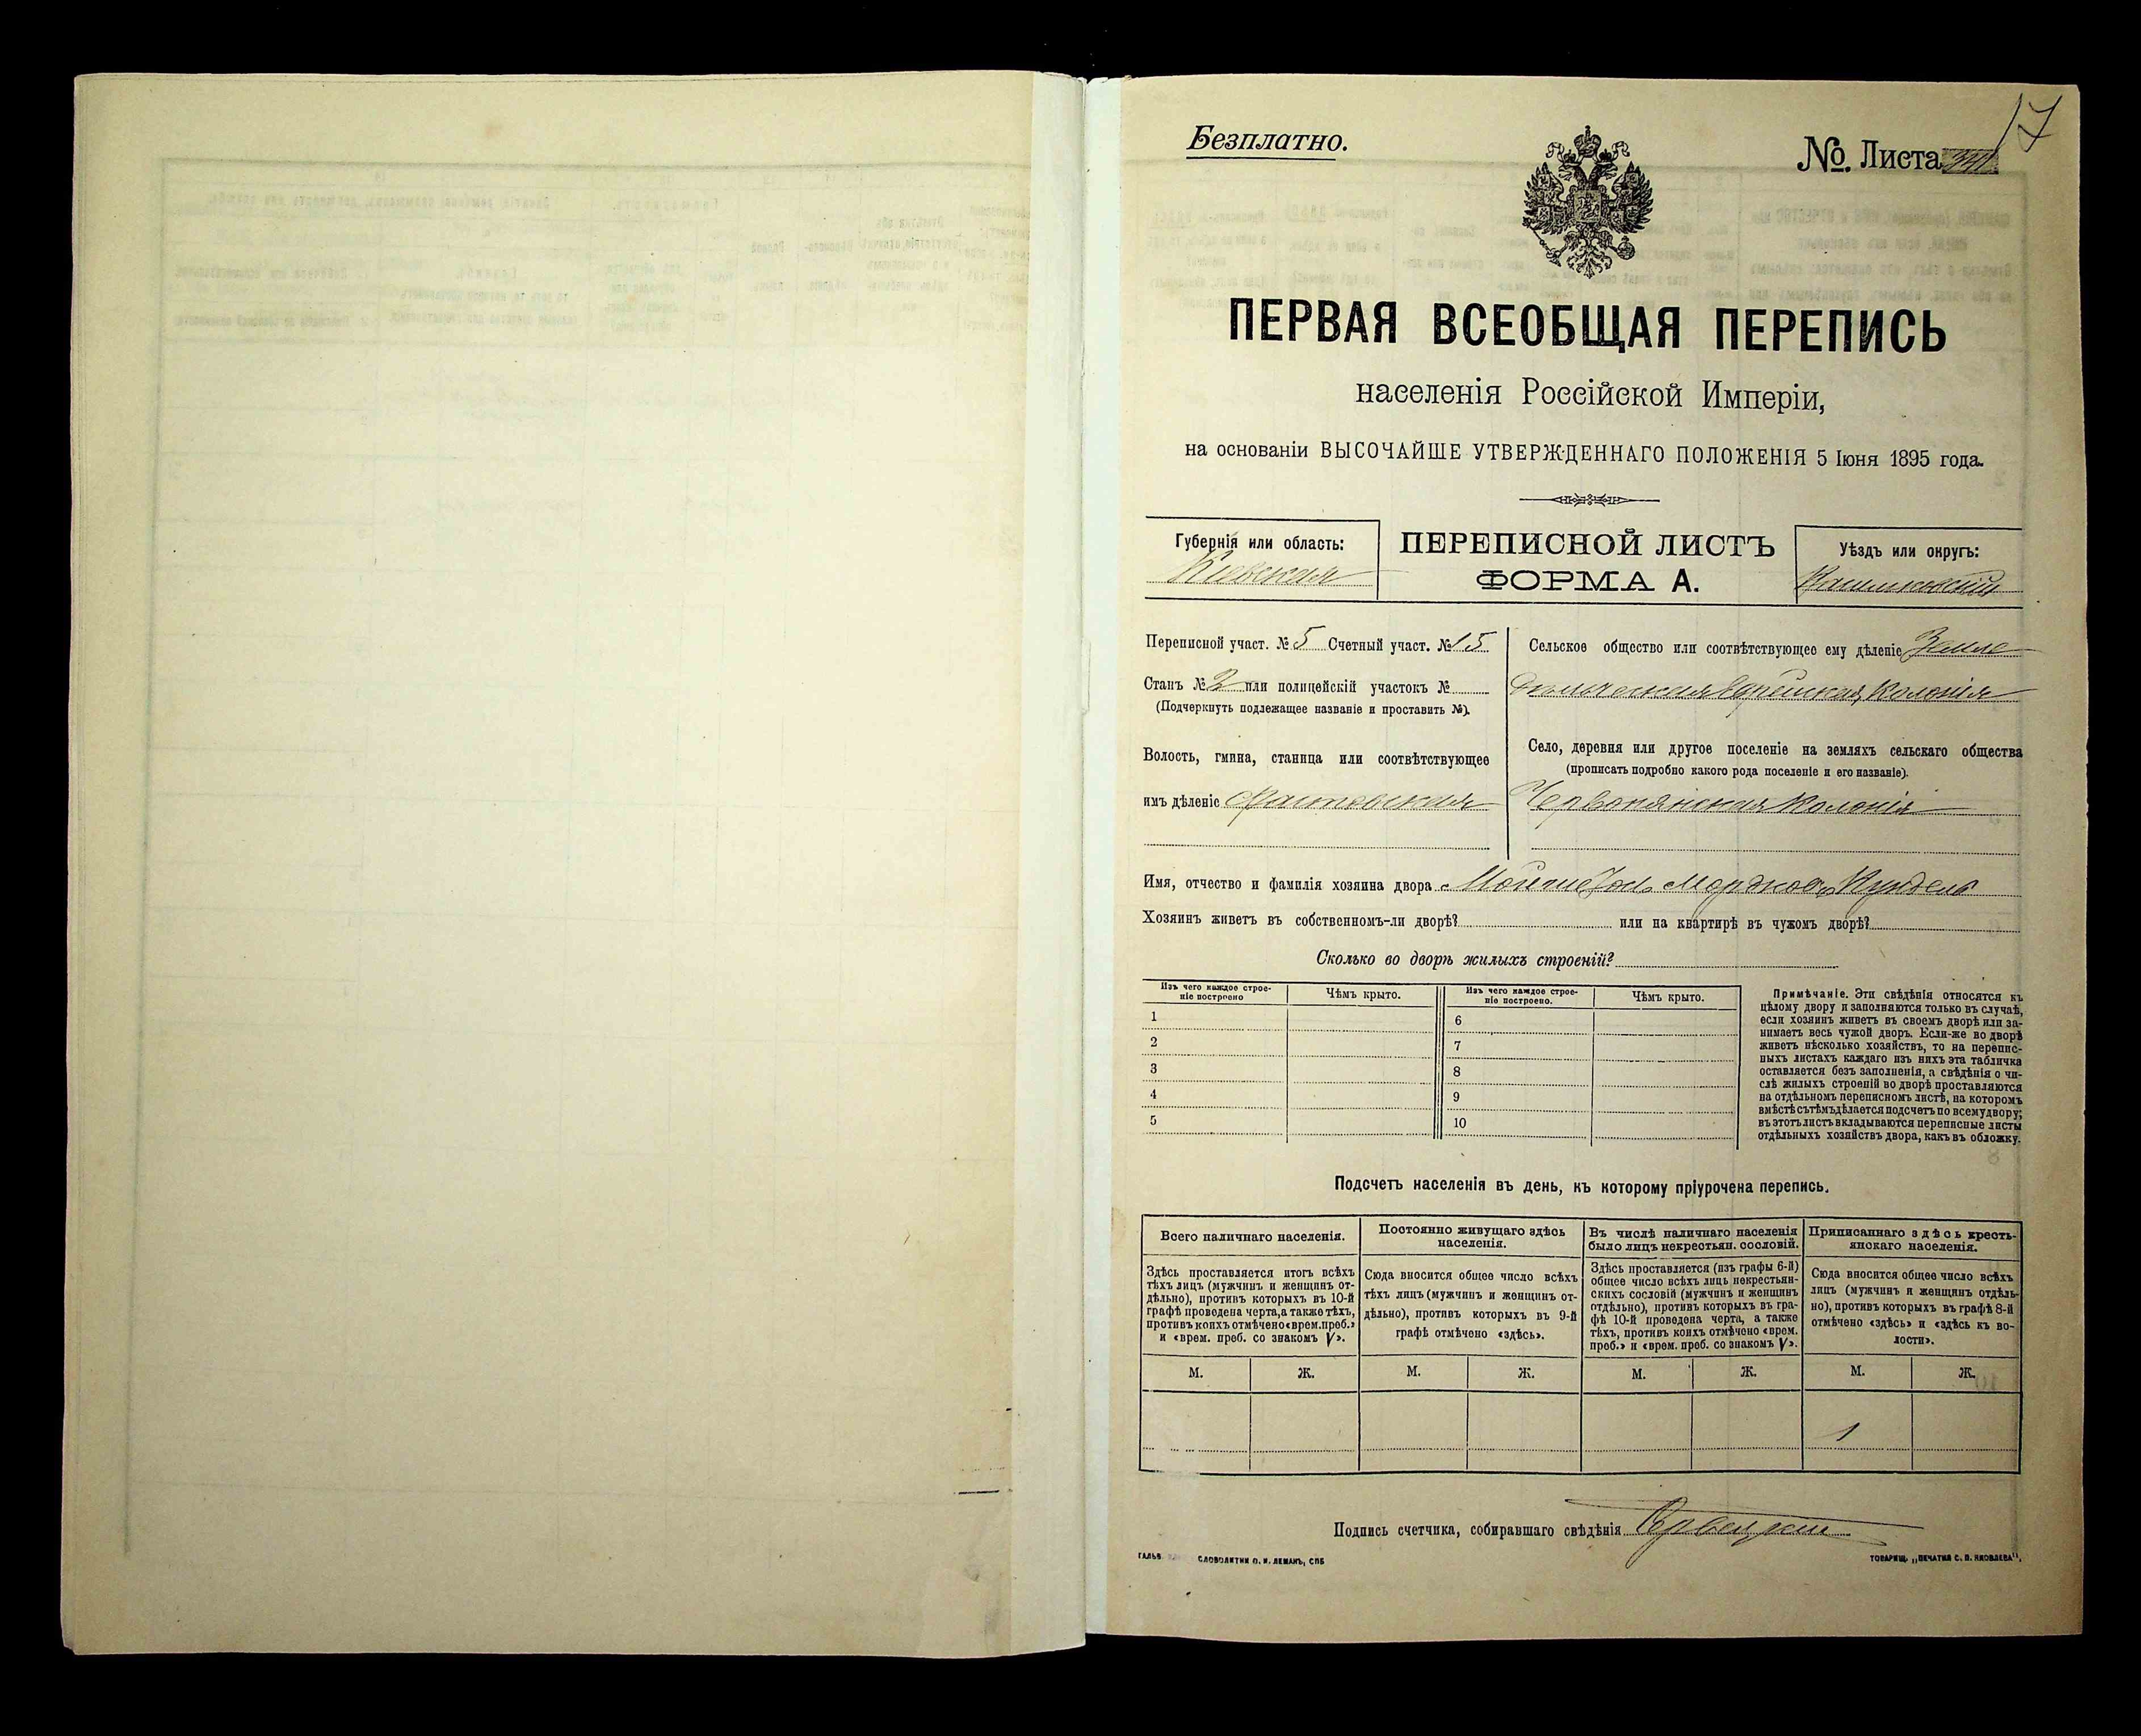 17
Безплатно.
№. Листа
ПЕРВАЯ ВСЕОБЩАЯ ПЕРЕПИСЬ
населенія Россійской Имперіи,
на основаніи ВЫСОЧАЙШЕ УТВЕРЖДЕННАГО ПОЛОЖЕНІЯ 5 Іюня 1895 года.
Губернія или область:
Кіевская
ПЕРЕПИСНОЙ ЛИСТЪ
ФОРМА А.
Уѣздъ или округъ:
Переписной участ. № 5 Счетный участ. № 15
Станъ № 2 или полицейскій участокъ №
(Подчеркнуть подлежащее названіе и проставить №).
Волость, гмина, станица или соотвѣтствующее
имъ дѣленіе Фастовская
Сельское общество или соотвѣтствующее ему дѣленіе Земле
дѣльческая Еврейская Колонія
Село, деревня или другое поселеніе на земляхъ сельскаго общества
(прописать подробно какого рода поселеніе и его названіе).
Червонянская Колонія
Имя, отчество и фамилія хозяина двора
Хозяинъ живетъ въ собственномъ-ли дворѣ? или на квартирѣ въ чужомъ дворѣ?
Сколько во дворѣ жилыхъ строеній?
Изъ чего каждое строе-
ніе построено
Чѣмъ крыто.
Изъ чего каждое строе-
ніе построено.
Чѣмъ крыто.
1 6
2 7
3 8
4 9
5 10
Примѣчаніе. Эти свѣдѣнія относятся къ
цѣлому двору и заполняются только въ случаѣ,
если хозяинъ живетъ въ своемъ дворѣ или за-
нимаетъ весь чужой дворъ. Если-же во дворѣ
живетъ нѣсколько хозяйствъ, то на перепис-
ныхъ листахъ каждаго изъ нихъ эта табличка
оставляется безъ заполненія, а свѣдѣнія о чи-
слѣ жилыхъ строеній во дворѣ проставляются
на отдѣльномъ переписномъ листѣ, на которомъ
вмѣстѣ съ тѣмъ дѣлается подсчетъ по всему двору;
въ этотъ листъ вкладываются переписные листы
отдѣльныхъ хозяйствъ двора, какъ въ обложку.
Подсчетъ населенія въ день, къ которому пріурочена перепись.
Всего наличнаго населенія.
Постоянно живущаго здѣсь
населенія.
Въ числѣ наличнаго населенія
было лицъ некрестьян. сословій.
Приписаннаго здѣсь кресть-
янскаго населенія.
Здѣсь проставляется итогъ всѣхъ
тѣхъ лицъ (мужчинъ и женщинъ от-
дѣльно), противъ которыхъ въ 10-й
графѣ проведена черта, а также тѣхъ,
противъ коихъ отмѣчено «врем. преб.»
и «врем. преб. со знакомъ V».
Сюда вносится общее число всѣхъ
тѣхъ лицъ (мужчинъ и женщинъ от-
дѣльно), противъ которыхъ въ 9-й
графѣ отмѣчено «здѣсь».
Здѣсь проставляется (изъ графы 6-й)
общее число всѣхъ лицъ некрестьян-
скихъ сословій (мужчинъ и женщинъ
отдѣльно), противъ которыхъ въ гра-
фѣ 10-й проведена черта, а также
тѣхъ, противъ коихъ отмѣчено «врем.
преб.» и «врем. преб. со знакомъ V».
Сюда вносится общее число всѣхъ
лицъ (мужчинъ и женщинъ отдѣль-
но), противъ которыхъ въ графѣ 8-й
отмѣчено «здѣсь» и «здѣсь къ во-
лости».
М. Ж. М. Ж. М. Ж. М. Ж.
1
Подпись счетчика, собиравшаго свѣдѣнія
ГАЛЬВ. СЛОВОЛИТНИ О. И. ЛЕМАНЪ, СПБ
ТОВАРИЩ. „ПЕЧАТНЯ С. П. ЯКОВЛЕВА".